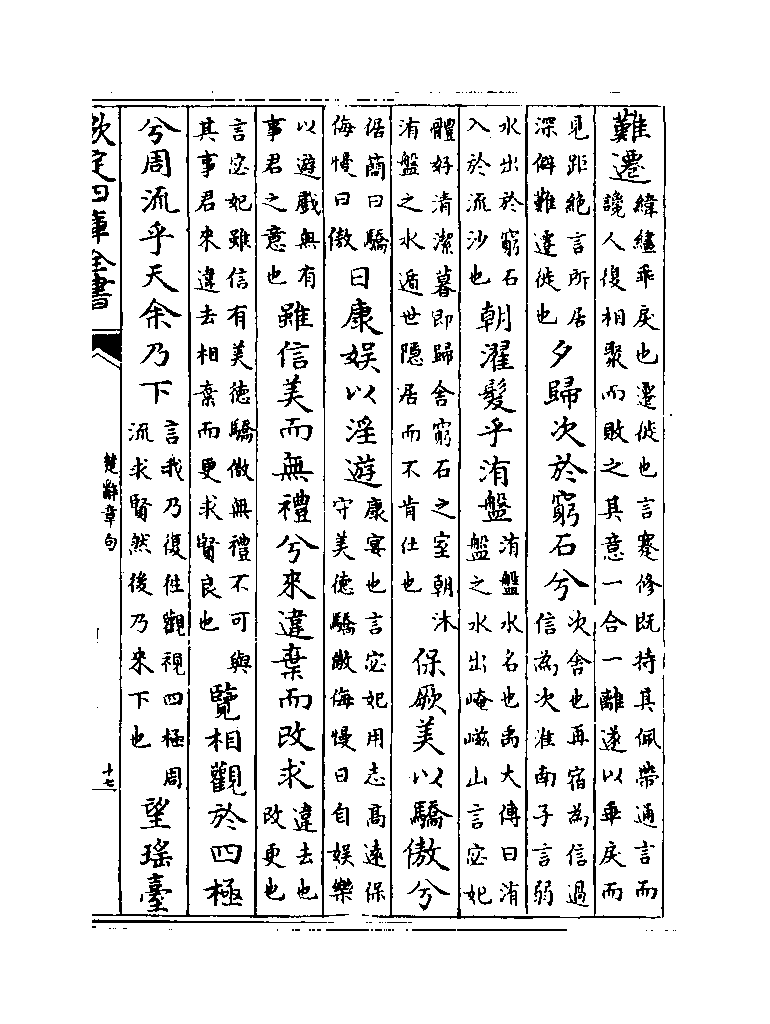 難遷緯繣乖戾也遷徙也言蹇修既持其佩帶通言而讒人復相聚而敗之其意一合一離遂以乖戾而
見距絕言所居深僻難遷徙也夕歸次於窮石兮次舍也再宿為信過信為次淮南子言弱
水出於窮石入於流沙也朝濯髮乎洧盤洧盤水名也禹大傳曰洧盤之水出崦嵫山言宓妃
體好清潔暮即歸舍窮石之室朝沐洧盤之水遁世隱居而不肯仕也保厥美以驕傲兮
倨簡曰驕侮慢曰傲日康娛以淫遊康宴也言宓妃用志高遠保守美德驕傲侮慢日自娛樂
以遊戲無有事君之意也雖信美而無禮兮來違棄而改求違去也改更也
言宓妃雖信有美德驕傲無禮不可與其事君來違去相棄而更求賢良也覽相觀於四極
兮周流乎天余乃下言我乃復往觀視四極周流求賢然後乃來下也望瑤臺
欽定四庫全書
楚辭章句
十七